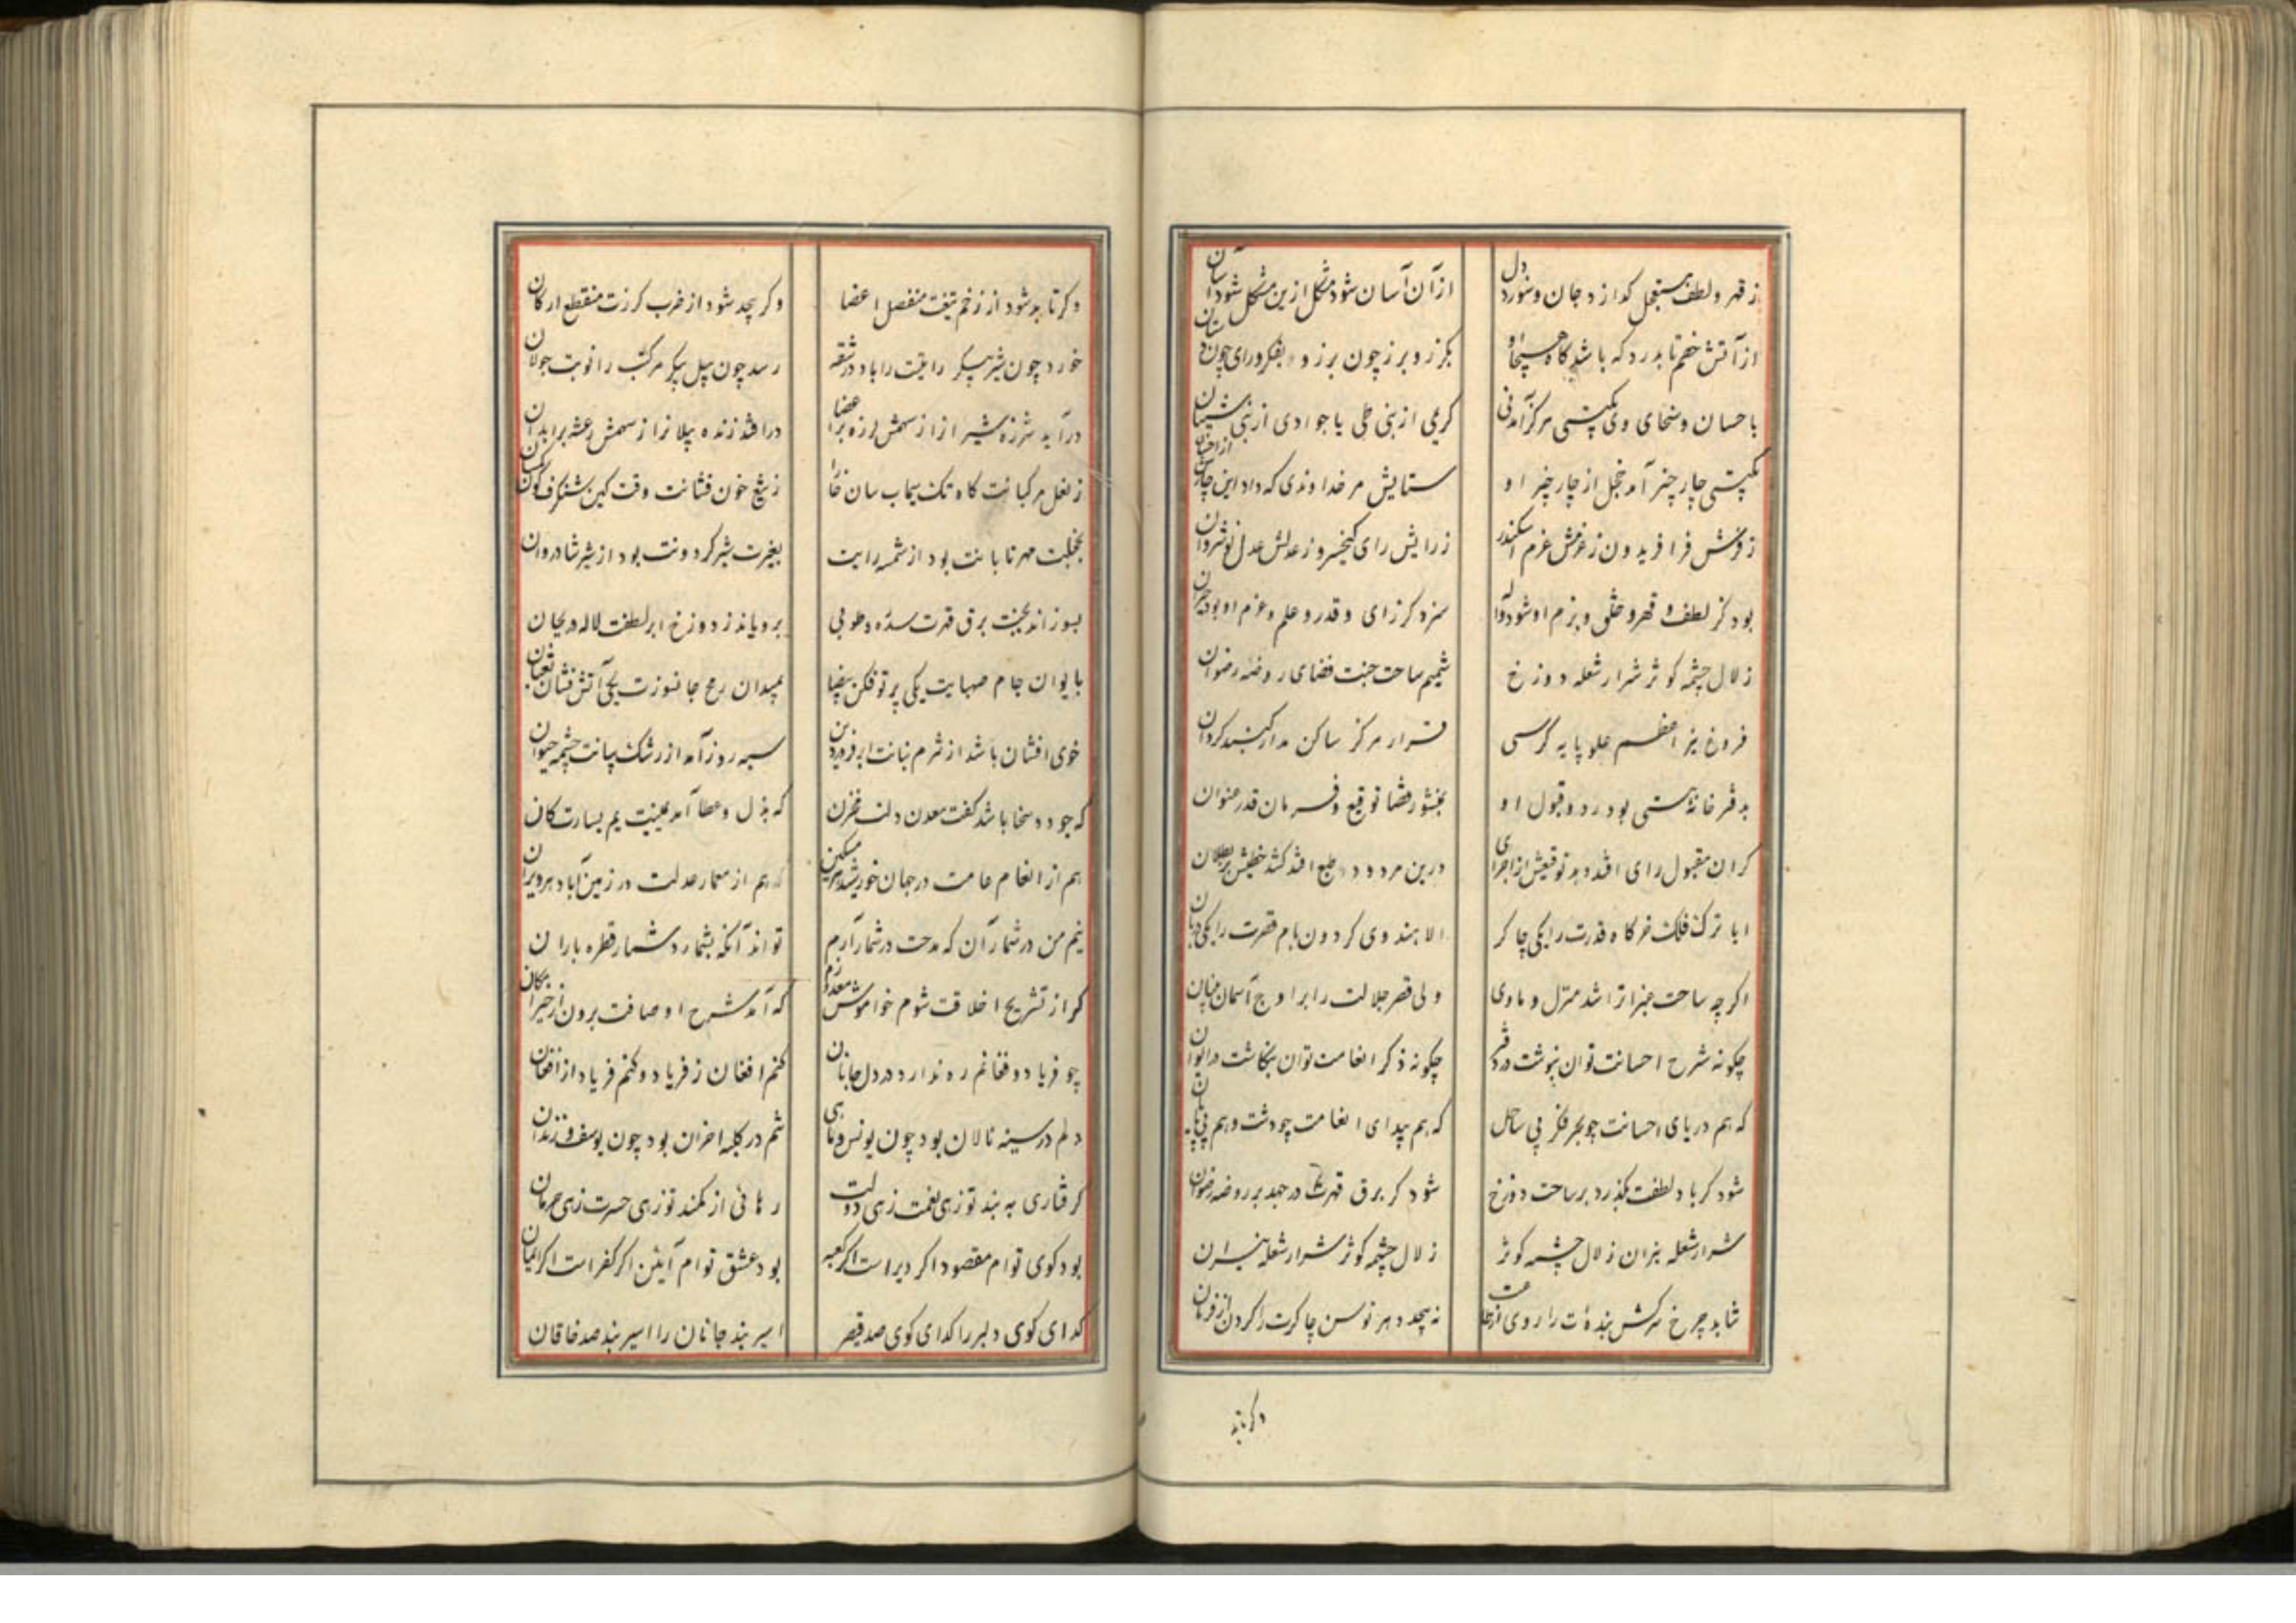 ز قهر و لطف مستعجل گدازد جان و سوزد دل
از آن آسان شود مشکل ازین مشکل شود آسان
از آتش خصم تا بدرد که باشد گاه هیجا او
بگرز و برز چون برزو بفکر و رای چون دستان
باحسان و سخای وی بگیتی مرکز آمد نی
کریمی از بنی طی یا جوادی از بنی شیبان
بگیتی چار چیز آمد خجل از چار چیز او
ستایش مر خداوندی که داد این چار
ز فرش فر افریدون ز عزمش عزم اسکندر
ز رایش رای کیخسرو ز عدلش عدل نوشروان
بود کز لطف و قهر و خلق و بزم او شود
سزد کز رای و قدر و حلم و عزم او بود
زلال چشمه کوثر شرار شعله دوزخ
شمیم ساحت جنت فضای روضه رضوان
فروغ نیر اعظم علو پایه کرسی
قرار مرکز ساکن مدار گنبد گردان
بدفتر خانهٔ هستی بود رد و قبول او
بمنشور قضا توقیع و فرمان قدر عنوان
گر آن مقبول رای افتد دهد توقیعش از اجرای
ور این مردود طبع افتد کشد خطیش بر بطلان
ایا ترک فلک خرگاه قدرت را یکی چاکر
الا هندوی گردون بام قصرت را یکی دربان
اگر چه ساحت جنرا ترا شد منزل و ماوی
ولی قصر جلالت را بر اوج آسمان بنیان
چگونه شرح احسانت توان بنوشت در دفتر
چگونه ذکر انعامت توان بنگاشت در دیوان
که هم دریای احسانت چو بحر فکر بی ساحل
که هم بیدای انعامت چو دشت وهم بی پایان
شود گر باد لطفت بگذرد بر ساحت دوزخ
شود گر برق قهرت در جهد بر روضه رضوان
شرار شعله نیران زلال چشمه کوثر
زلال چشمه کوثر شرار شعله نیران
نتابد چرخ سرکش بنده‌ات را روی از طاعت
نپیچد دهر توسن چاکرت را گردن از فرمان
وگر تابد
وگر تابد شود از زخم تیغت منفصل اعضا
وگر پیچد شود از ضرب گرزت منقطع ارکان
خورد چون شیر پیکر رایتت را باد در شقه
رسد چون پیل پیکر مرکبت را نوبت جولان
درآید شرزه شیر از از سهمش لرزه بر اعضا
درافتد زنده پیلانرا ز سهمش رعشه بر ابدان
ز نعل مرکبانت گاه تک سیماب سان خارا
ز تیغ خون فشانت وقت کین شنگرف گون
بخجلت مهر تابانت بود از شمسه رایت
بغیرت شیر گردونت بود از شیر شادروان
بسوزاند بجنت برق قهرت سدره و طوبی
برویاند ز دوزخ ابر لطفت لاله و ریحان
بایوان جام صهبایت یکی پرتو فکن بیضا
بمیدان رمح جانسوزت یکی آتش فشان ثعبان
خوی افشان باشد از شرم بنانت ابر فروردین
سیه روز آمد از رشک بیانت چشمه حیوان
که جود و سخا باشد کفت معدن دلت مخزن
که بذل و عطا آمد یمینت یم یسارت کان
هم از انعام عامت در جهان خورشید هر مسکین
هم از معمار عدلت در زمین آباد هر ویران
نیم من در شمار آن که مدحت در شمار آرم
تواند آنکه بشمارد شمار قطره باران
گر از تشریح اخلاقت شوم خاموش معذورم
که آمد شرح اوصافت برون از حیز امکان
چو فریاد و فغانم ره ندارد در دل جانان
کنم افغان ز فریاد و کنم فریاد از افغان
دلم در سینه نالان بود چون یونس و ماهی
تنم در کلبه احزان بود چون یوسف و زندان
گرفتاری به بند تو زهی نعمت زهی دولت
رهائی از کمند تو زهی حسرت زهی حرمان
بود کوی توام مقصود اگر دیر است اگر کعبه
بود عشق توام آیین اگر کفر است اگر ایمان
گدای کوی دلبر را گدای کوی صد قیصر
اسیر بند جانان را اسیر بند صد خاقان